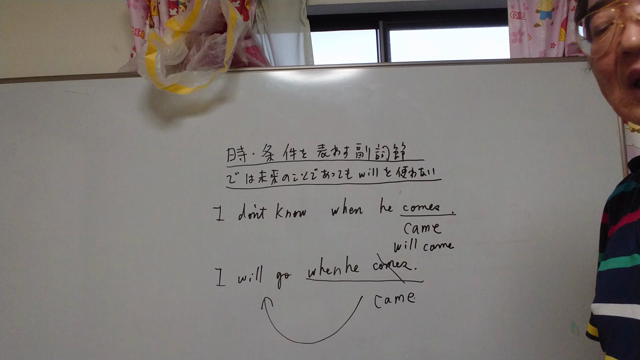 時・条件を表わす副詞節
では未来のことであってもwillを使わない
I don't know when he comes.
came
will come
I will go when he comes.
came